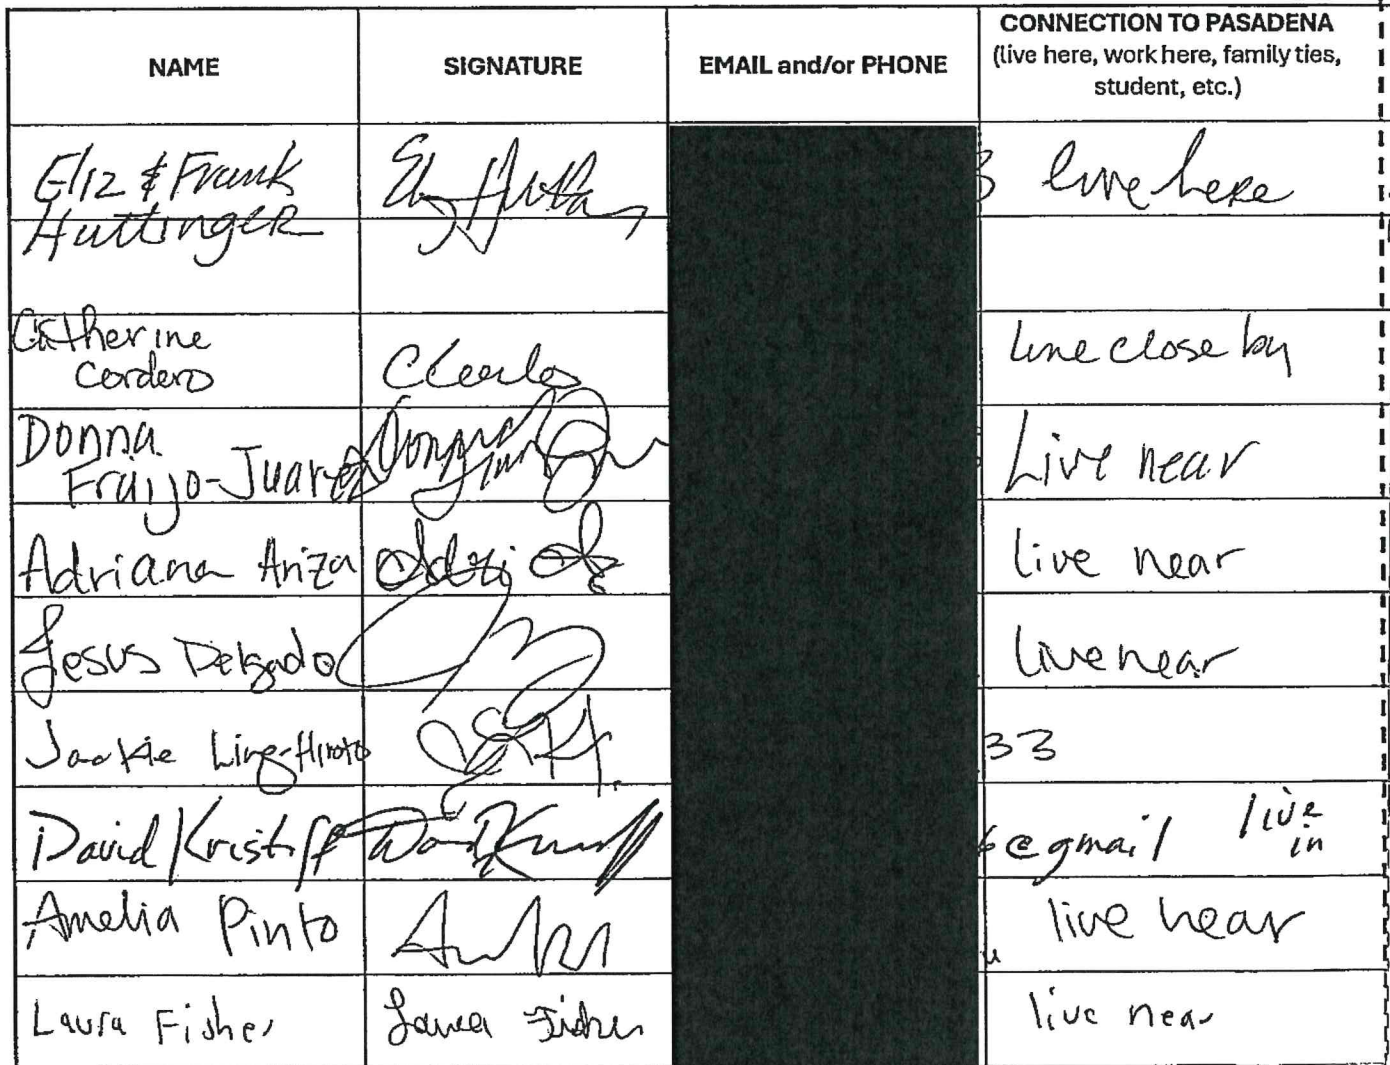 NAME
SIGNATURE
EMAIL and/or PHONE
CONNECTION TO PASADENA
(live here, work here, family ties,
student, etc.)
Eliz & Frank
Huttinger
live here
Catherine
Cordero
live close by
Donna
Fraijo-Juarez
Live near
Adriana Ariza
live near
Jesus Delgado
live near
Jackie Ling-Hiroto
33
David Kristoff
@gmail live
in
Amelia Pinto
live near
Laura Fisher
Laura Fisher
live near